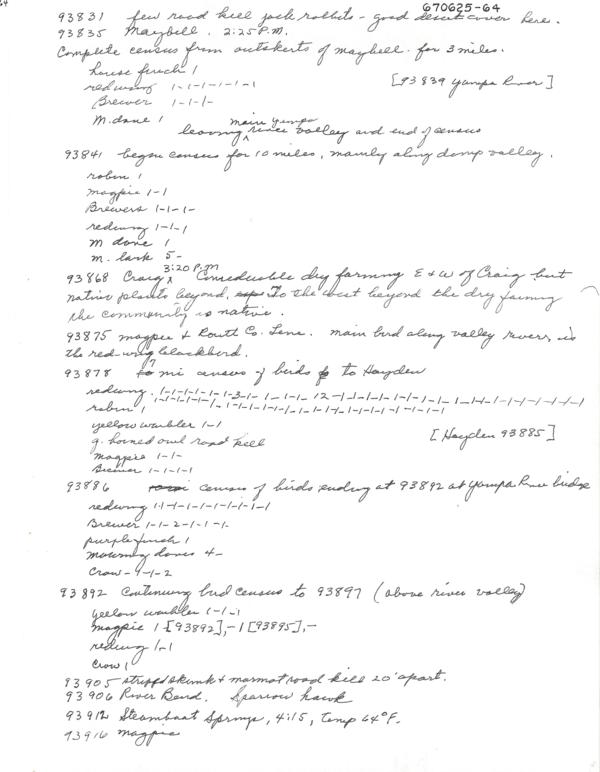 670625-64
93831 few road kill jack rabbits - good desert cover here.
93835 Maybell. 2:25 P.M.
Complete census from outskerts of maybell. for 3 miles.
house finch 1
redwing 1-1-1-1-1-1
[93839 Yampa River]
Brewer 1-1-1-
M. dove 1
main Yampa
leaving river valley and end of census
93841 began census for 10 miles, mainly along damp valley.
robin 1
magpie 1-1
Brewers 1-1-1-
redwing 1-1-1
M dove 1
m. lark 5-
3:20 P.M
93868 Craig Considerable dry farming E & W of Craig but
native plants beyond. To the west beyond the dry farming
the community is native.
93875 magpie & Routt Co. Line. main bird along valley rivers, is
the red-wing blackbird.
93878 7 mi census of birds to Hayden
redwing
robin 1
yellow warbler 1-1
g. horned owl road kill
[Hayden 93885]
magpie 1-1-
Brewer 1-1-1-1
93886 census of birds ending at 93892 at Yampa River bridge
redwing 1-1-1-1-1-1-1-1-1
Brewer 1-1-2-1-1-1-
purple finch 1
mourning doves 4-
Crow-4-1-2
93892 Continuing bird census to 93897 (above river valley)
yellow warbler 1-1-1
magpie 1-[93892],-1[93895],-
redwing 1-1
Crow 1
93905 striped skunk & marmot road kill 20' apart.
93906 River Bend. Sparrow hawk
93912 Steamboat Springs, 4:15, Temp 64°F.
93916 magpie